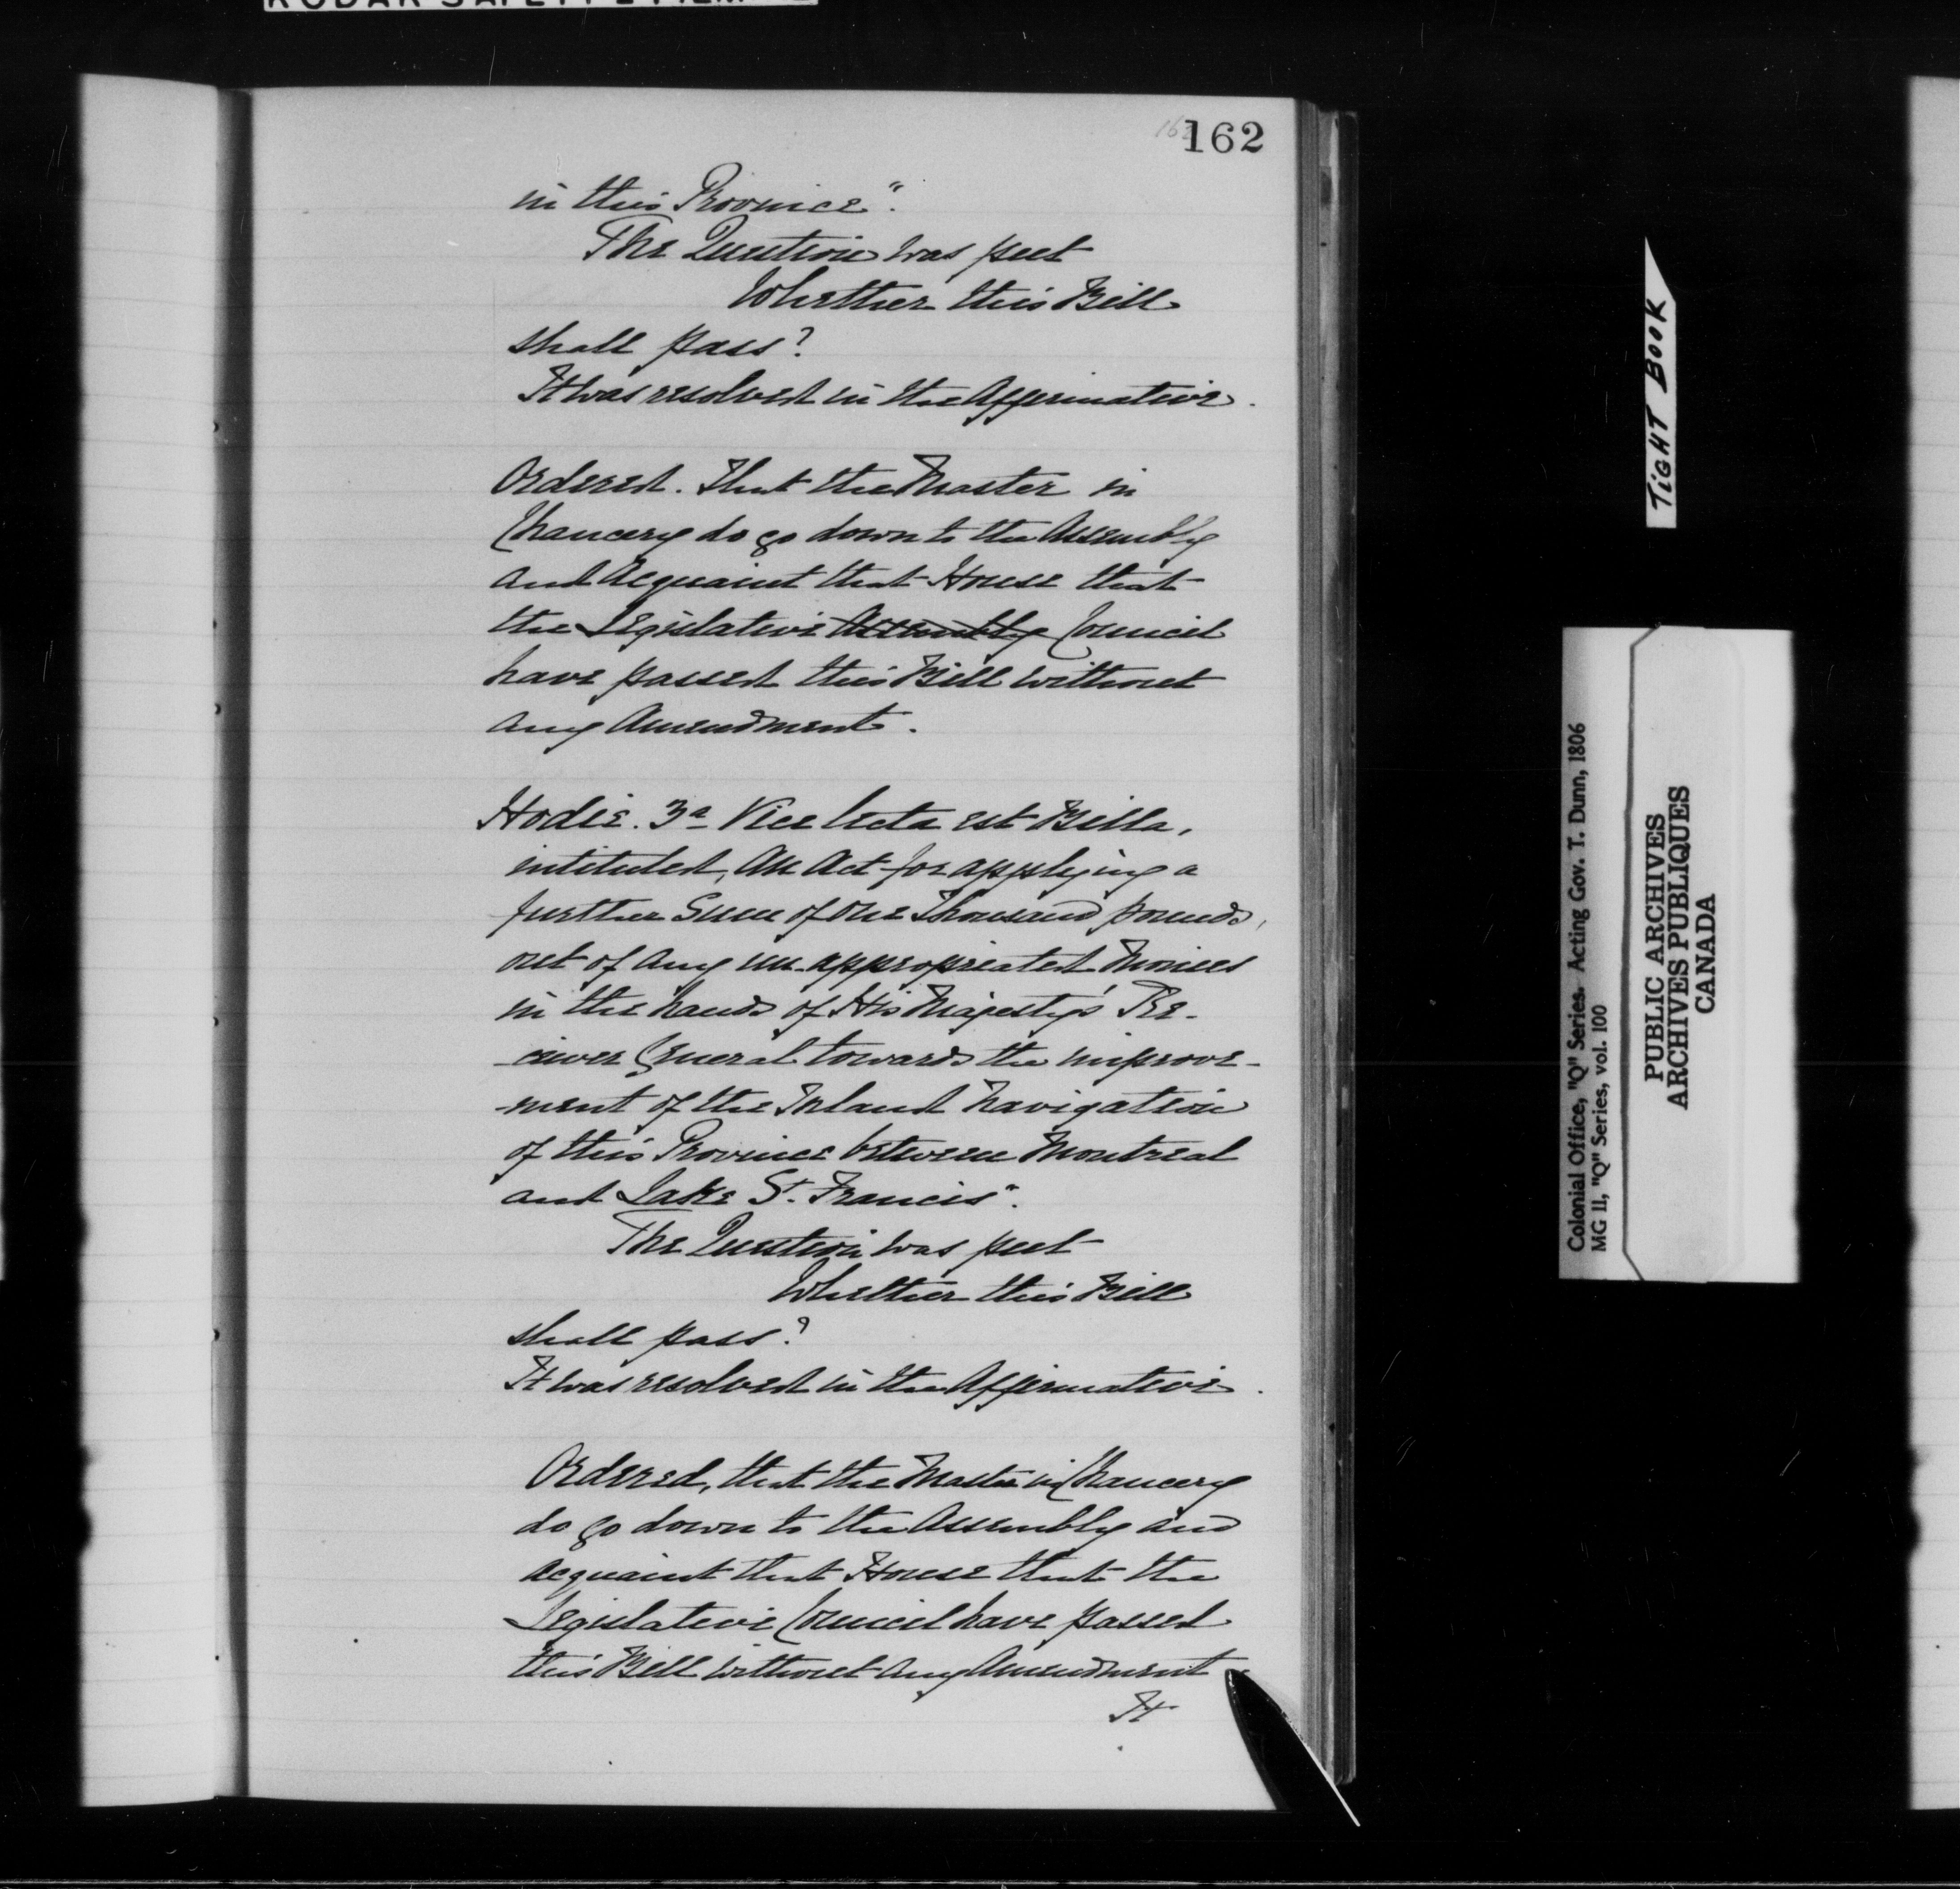 KODAK SAFETY FILM
162
in this Province".
The Question was put
Whether this Bill
shall pass?
It was resolved in the Affirmative.
Ordered. That the Master in
Chancery do go down to the Assembly
and Acquaint that House that
the Legislative Assembly Council
have passed this Bill without
any Amendment.
Hodie. 3a Vice lecta est Billa,
intituled, An Act for applying a
further Sum of One Thousand pounds,
out of any un-appropriated Monies
in the hands of His Majesty's Re-
-ceiver General towards the improve-
-ment of the Inland Navigation
of this Province between Montreal
and Lake St. Francis".
The Question was put
Whether this Bill
shall pass?
It was resolved in the Affirmative.
Ordered, that the Master in Chancery
do go down to the Assembly and
Acquaint that House that the
Legislative Council have passed
this Bill without any Amendment.
It
TIGHT BOOK
Colonial Office, "Q" Series. Acting Gov. T. Dunn, 1806
MG 11, "Q" Series, vol. 100
PUBLIC ARCHIVES
ARCHIVES PUBLIQUES
CANADA